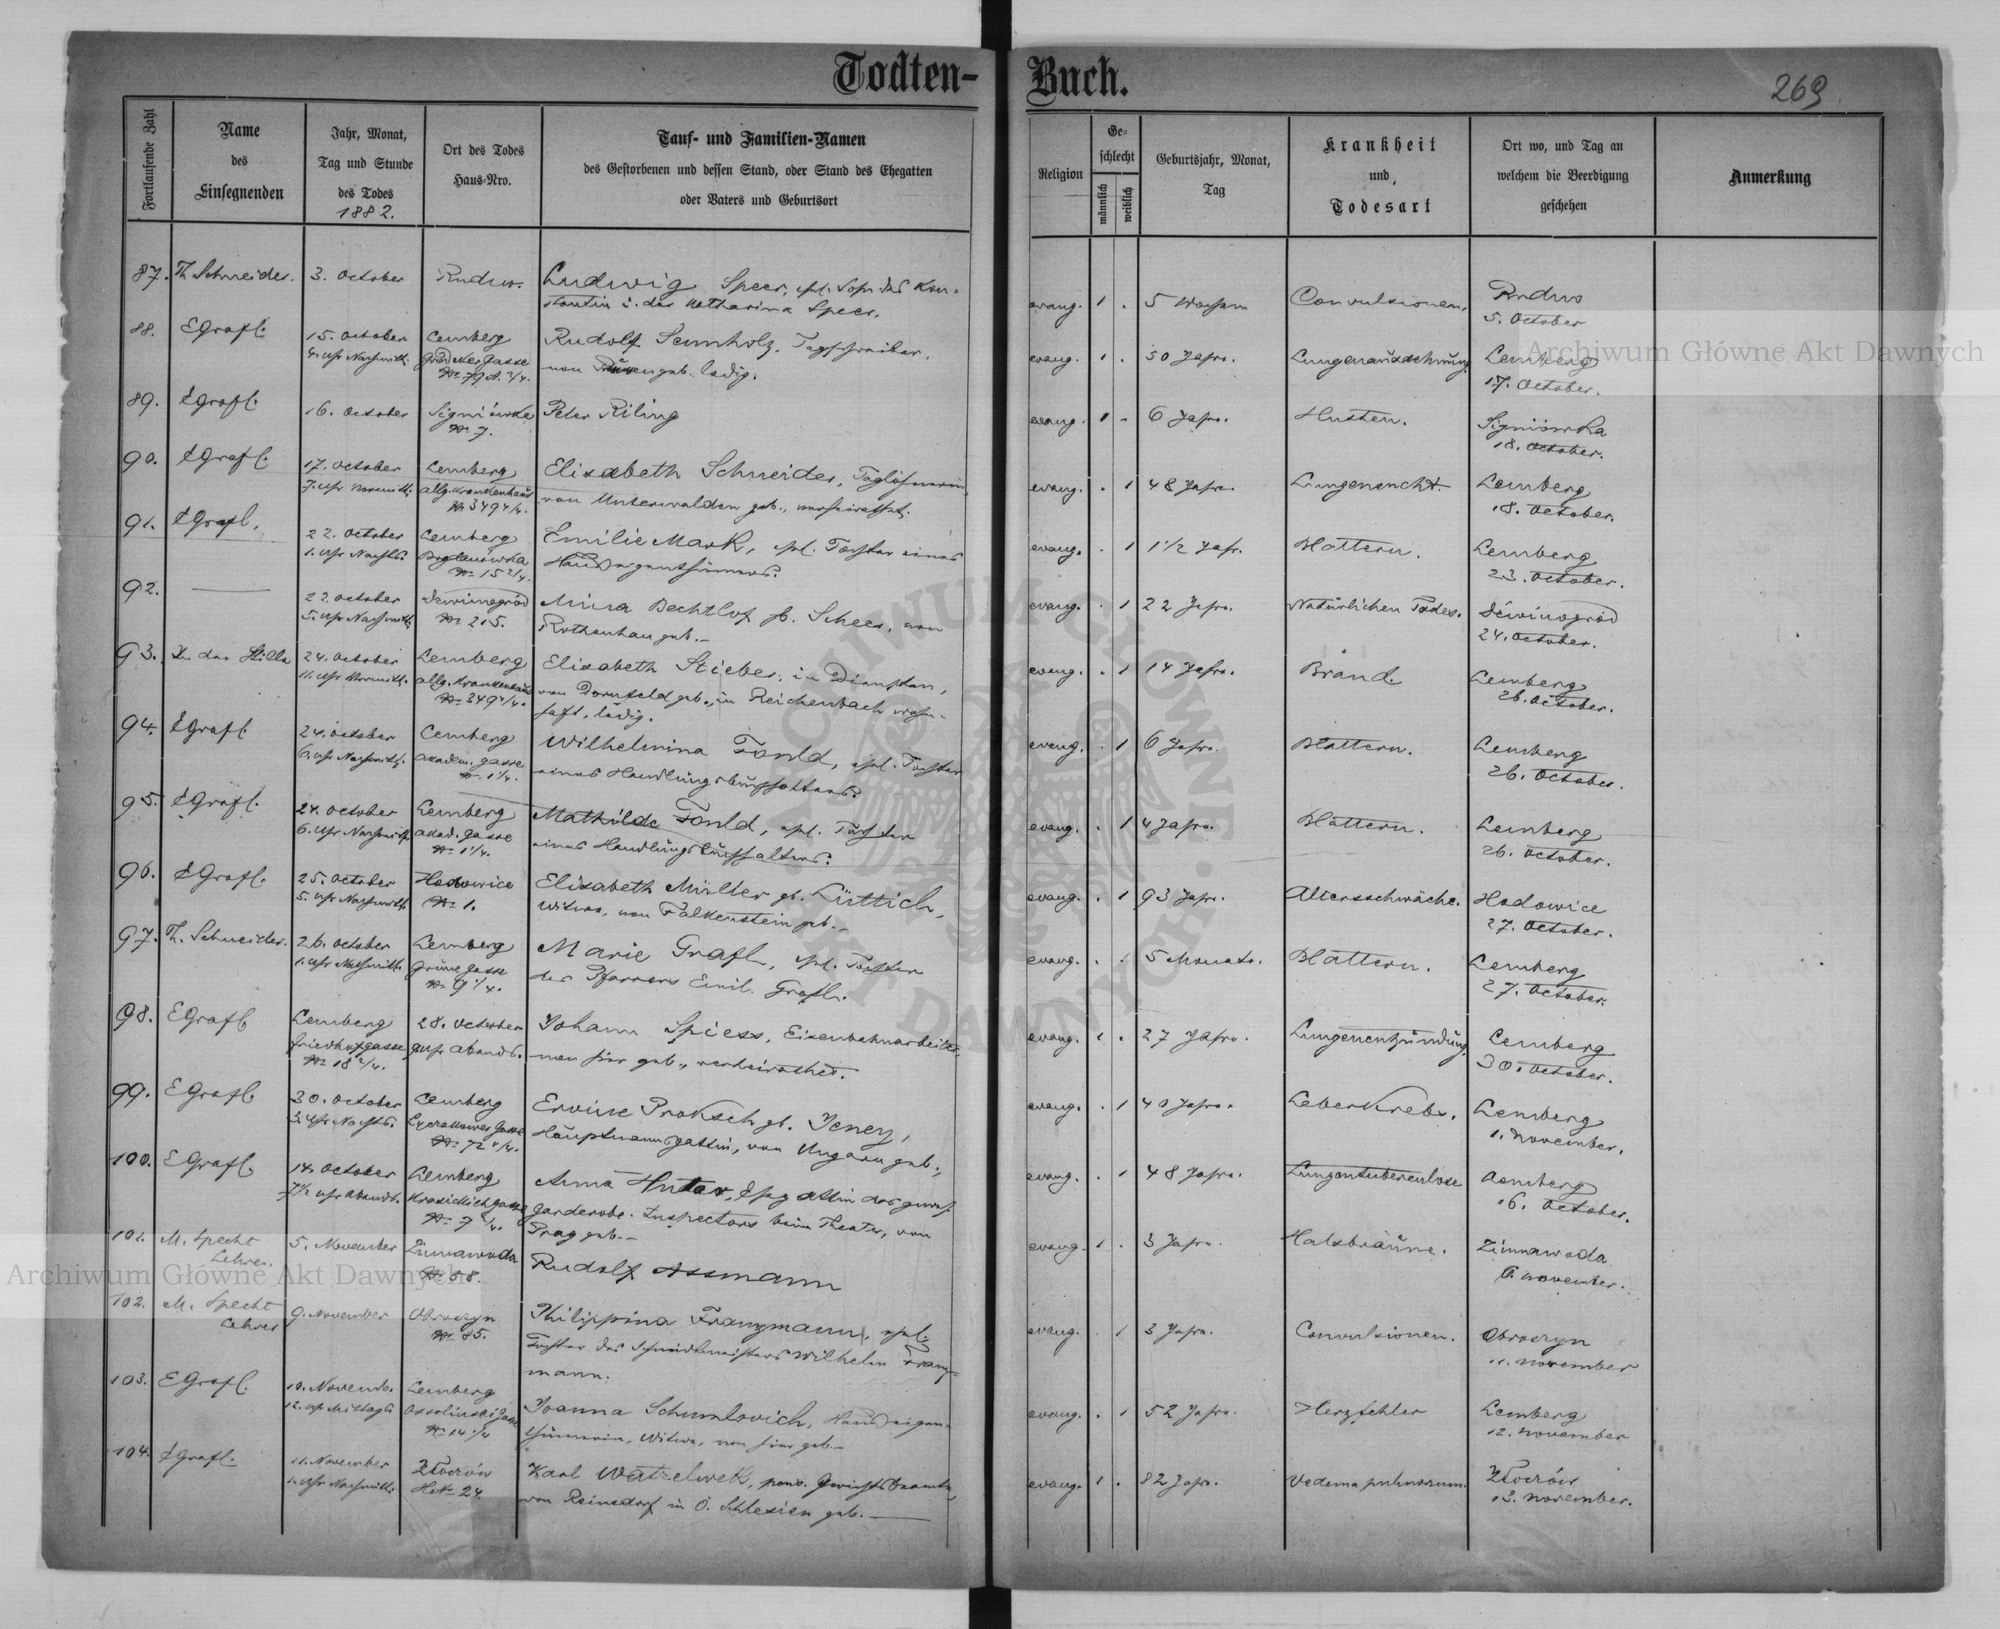 Todten-Buch.
269
Fortlaufende Zahl
Name
des
Einsegnenden
Jahr, Monat,
Tag und Stunde
des Todes
1882.
Ort des Todes
Haus-Nro.
Tauf- und Familien-Namen
des Gestorbenen und dessen Stand, oder Stand des Ehegatten
oder Vaters und Geburtsort
Religion
Ge-
schlecht
männlich
weiblich
Geburtsjahr, Monat,
Tag
Krankheit
und
Todesart
Ort wo, und Tag an
welchem die Beerdigung
geschehen
Anmerkung
87. Th. Schneider. 3. October Ludwig Speer, ehl. Sohn des Kon-
stantin u. der Katharina Speer.
evang. 1 . 5 Wochen Convulsionen.
5. October
88. EGrafl. 15. October Lemberg Rudolf
4. Uhr Nachmitt. Grodeker gasse geb. ledig.
evang. 1 . 50 Jahre. Lemberg
17. October.
89. EGrafl. 16. October Signiówka Peter Riling
№ 7.
evang. 1 - 6 Jahre. Husten. Signiówka
18. October.
90. EGrafl. 17. October Lemberg Elisabeth Schneider, Taglöhnerin
7. Uhr Vormitt. allg. Krankenhaus von Unterwalden geb., verheirathet.
evang. . 1 48 Jahre. Lemberg
18. October.
91. EGrafl. 22. October Lemberg Emilie Mark, ehl. Tochter eines
1. Uhr Nachts. Bogdanówka Hauseigenthümers.
evang. . 1 1 1/2 Jahr. Blattern. Lemberg
23. October.
92. 22. October Dewinogród Mina Bechtlof gb. Scheer, von
5. Uhr Nachmitt. № 215. Rothenhan geb.-
evang. . 1 22 Jahre. Natürlichen Todes. Dewinogród
24. October.
93. In der Stille 24. October Lemberg Elisabeth Stieber, in Diensten,
11. Uhr Vormitt. allg. Krankenhaus von Dornfeld geb., in Reichenbach wohn-
haft, ledig.
evang. . 1 14 Jahre. Brand. Lemberg
26. October.
94. EGrafl. 24. October Lemberg Wilhelmina Fonld, ehl. Tochter
6. Uhr Nachmitt. akadem. gasse eines Handlungsbuchhalters.
№ 1 1/4.
evang. . 1 6 Jahre. Blattern. Lemberg
26. October.
95. EGrafl. 24. October Lemberg Mathilde Fonld, ehl. Tochter
6. Uhr Nachmitt. akad. gasse eines Handlungsbuchhalters.
№ 1 1/4.
evang. . 1 4 Jahre. Blattern. Lemberg
26. October.
96. EGrafl. 25. October Hodowice Elisabeth Müller gb. Lüttich,
5. Uhr Nachmitt. № 1. Witwe, von Falkenstein geb.-
evang. . 1 93 Jahre. Altersschwäche. Hodowice
27. October.
97. Th. Schneider. 26. October Lemberg Marie Grafl, ehl. Tochter
1. Uhr Nachmitt. Grüne gasse des Pfarrers Emil Grafl.
№ 9 1/4.
evang. . . 5 Monate. Blattern. Lemberg
27. October.
98. EGrafl. Lemberg 28. October Johann Spiess, Eisenbahnarbeiter,
friedhofgasse 9 Uhr Abends. von hier geb., verheirathet.
№ 18 2/4.
evang. 1 . 27 Jahre. Lungenentzündung. Lemberg
30. October.
99. EGrafl. 30. October Lemberg Ervine Proksch gb. Jeney,
3. Uhr Nachts. Lyczakower Gasse Hauptmannsgattin, von Ungarn geb.
evang. . 1 40 Jahre. Leberkrebs. Lemberg
1. November.
100. EGrafl. 14. October Lemberg Anna Huter, Ehegattin des gewes.
7 1/2 Uhr Abends. Krasickich gasse Garderobe-Inspectors beim Theater, von
Prag geb.-
evang. . 1 48 Jahre. Lungentuberculose Lemberg
16. October.
101. M. Specht 5. November Zimnawoda Rudolf Assmann
Lehrer. № 58.
evang. 1 . 3 Jahre. Halsbräune. Zimnawoda
6. November.
102. M. Specht 9. November Obroszyn Philippina Franzmann, ehl.
Lehrer № 85. Tochter des Schmiedmeisters Wilhelm Franz-
mann.
evang. . 1 3 Jahre. Convulsionen. Obroszyn
11. November
103. EGrafl. 10. Novemb. Lemberg Joanna Schumlovich, Hauseigen-
12. Uhr Mittags. Ossolinski Gasse thümerin, Witwe, von hier geb.-
№ 14 1/4
evang. . 1 52 Jahre. Herzfehler Lemberg
12. November
104. EGrafl. 11. November Złoczów Karl Watzelwek, pens. Gerichtsbeamte,
1. Uhr Nachmitt. H№ 24. von Reinsdorf in Ö. Schlesien geb.
evang. 1 . 82 Jahre. Oedema pulmonum. Złoczów
13. November.
Archiwum Główne Akt Dawnych
Archiwum Główne Akt Dawnych
ARCHIWUM GŁÓWNE AKT DAWNYCH